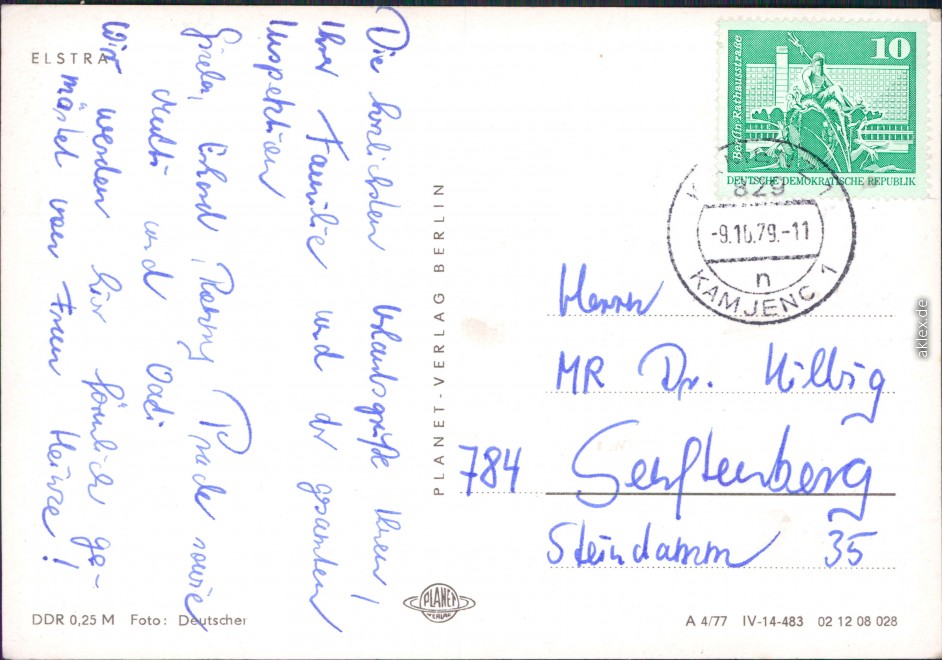 ELSTRA
Die herzlichsten Urlaubsgrüße Ihnen,
Ihrer Familie und der gesamten
Inspektion
Gisela, Erhard, Ronny Prade sowie
Mutti und Vati
Wir werden hier förmlich ge-
mästet von Frau Heinze!
PLANET-VERLAG BERLIN
10
Berlin-Rathausstraße
DEUTSCHE DEMOKRATISCHE REPUBLIK
829
-9.10.79.-11
n
KAMJENC 1
Herrn
MR Dr. Hilbig
784 Senftenberg
Steindamm 35
PLANET
VERLAG
DDR 0,25 M Foto: Deutscher
A 4/77 IV-14-483 02 12 08 028
aklex.de